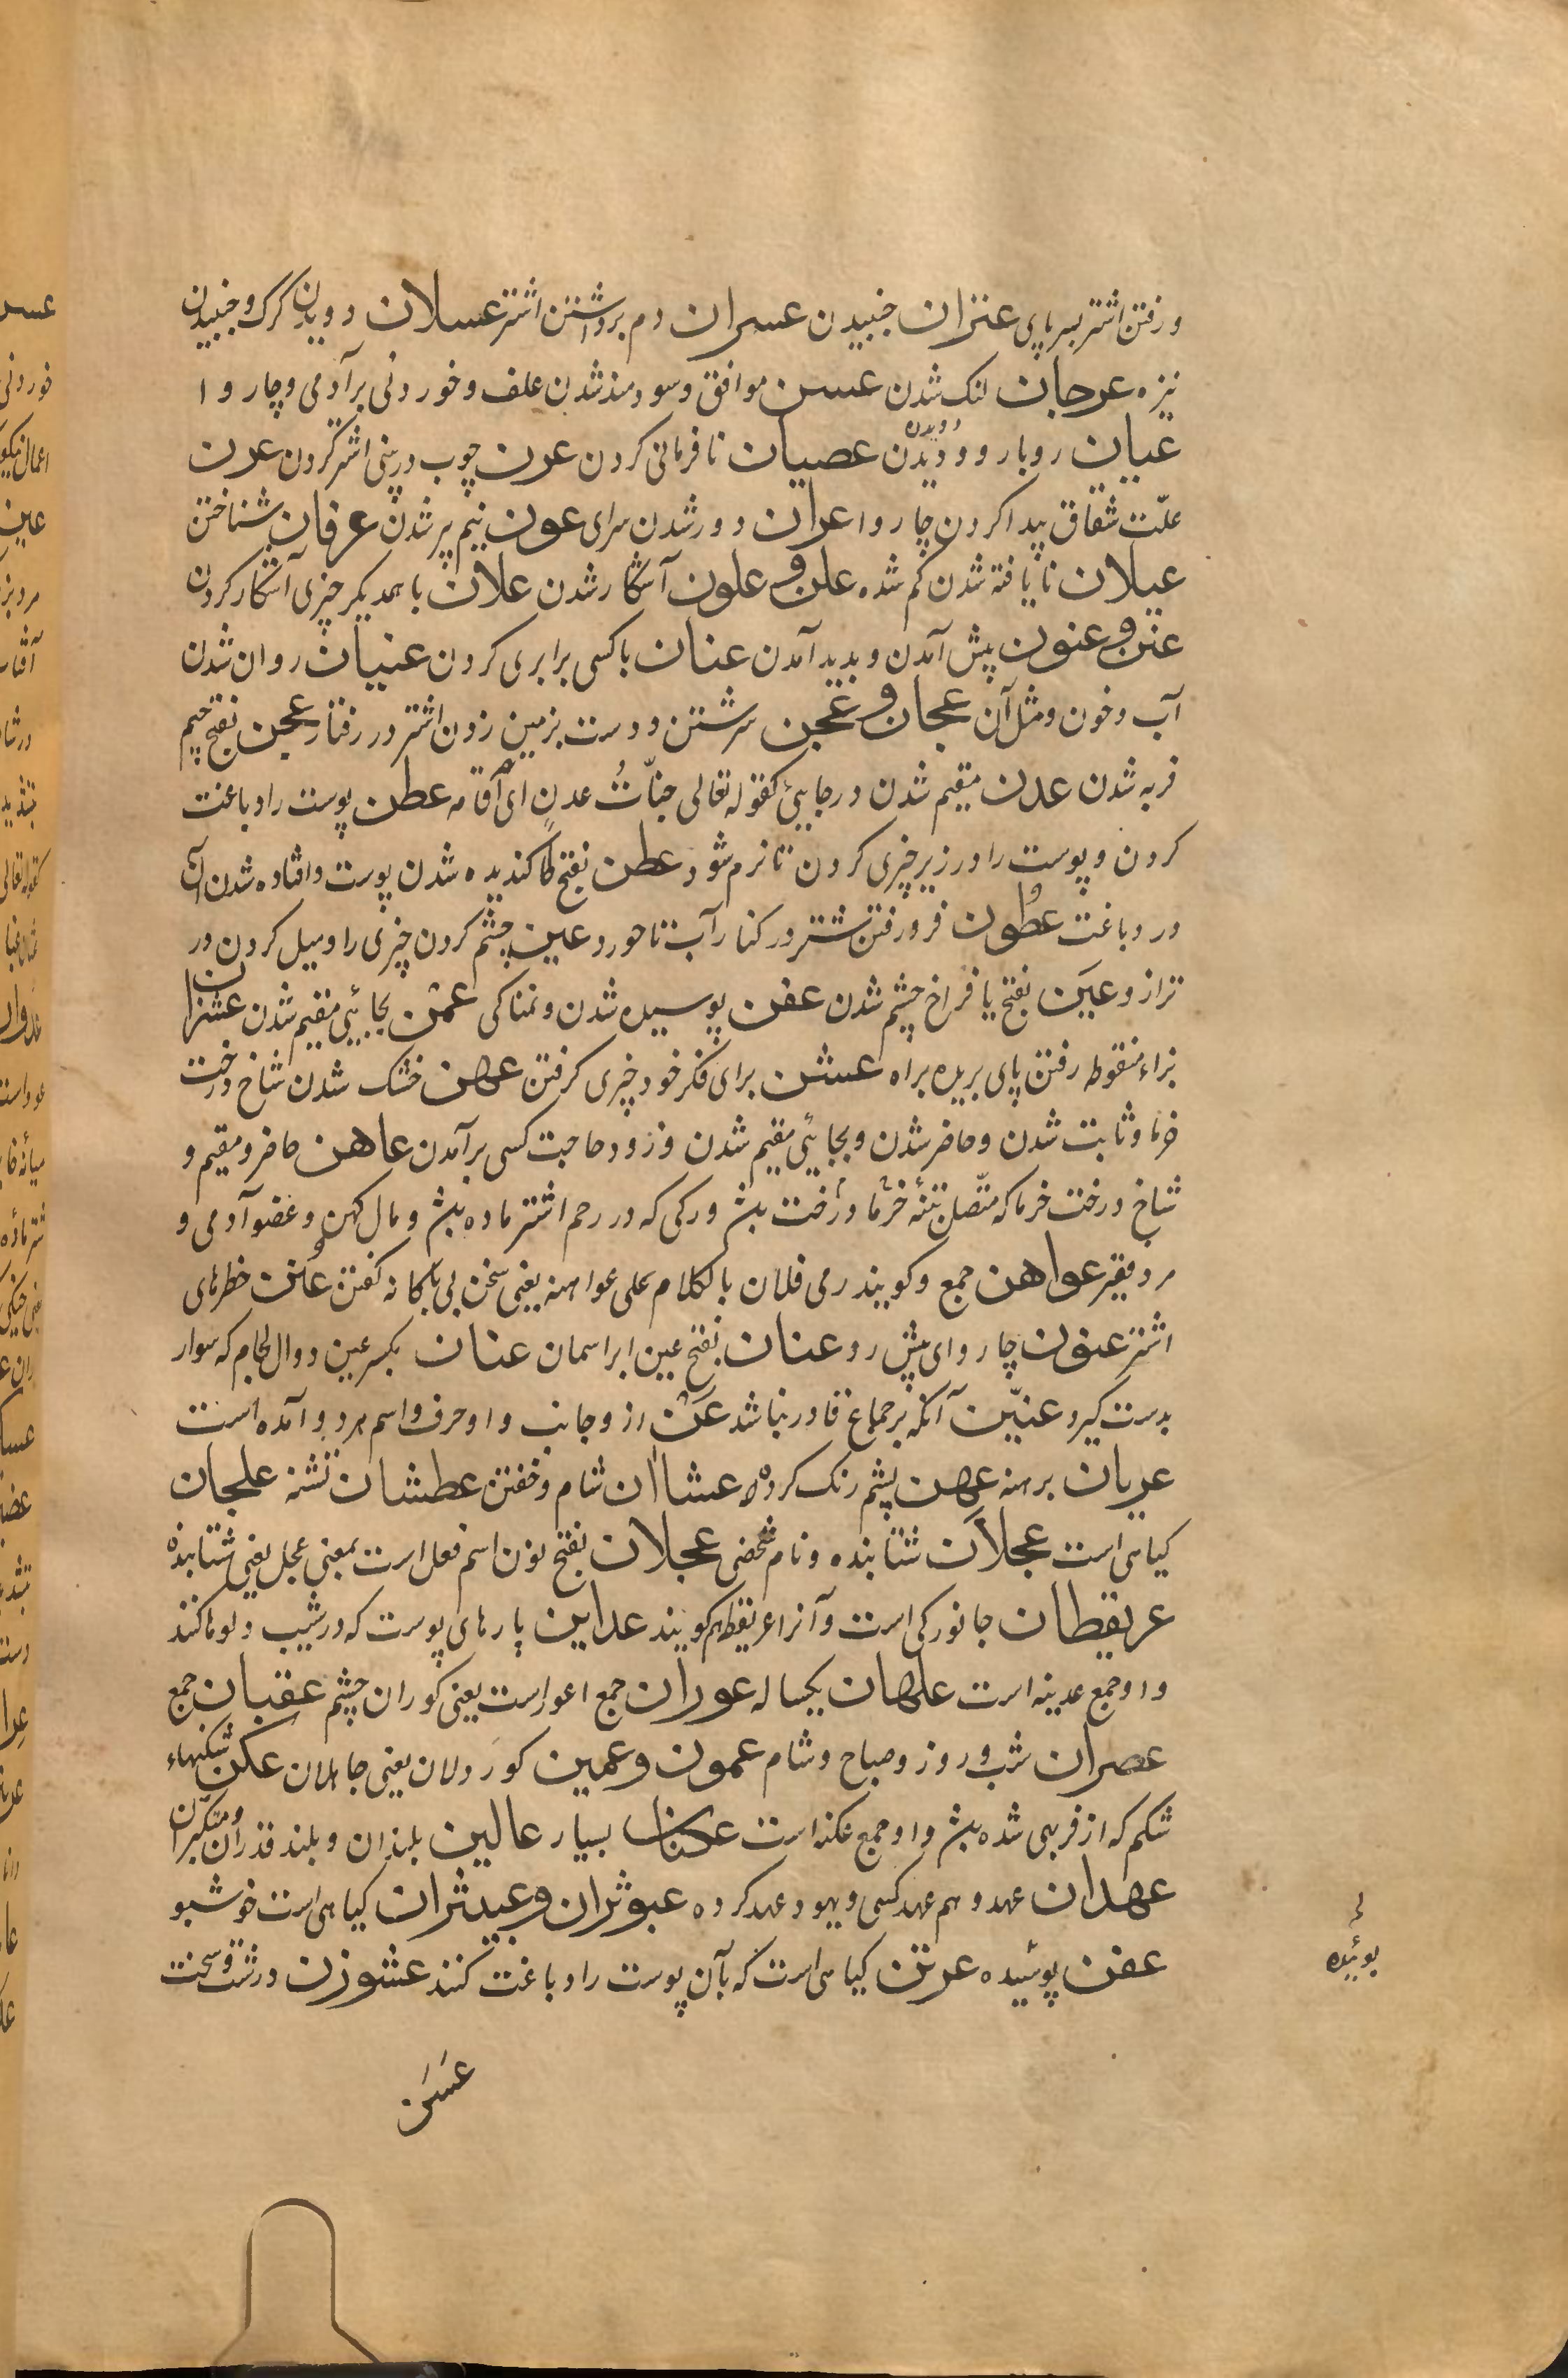 و رفتن اشتر بسر پای عنزان جنبیدن عسران دم برداشتن اشتر عسلان دویدن کرک و جنبیدن
نیزه عرجان لنک شدن عسن موافق و سودمند شدن علف و خوردنی بر آدمی و چاروا
عیان روبارو و دیدن عصیان نافرمانی کردن عرن چوب در بینی اشتر کردن عرن
علّت شقاق پیدا کردن چاروا عران دور شدن سرای عون نیم پر شدن عرفان شناختن
عیلان نایافته شدن کم شده علن و علون آشکار شدن علان با همدیکر چیزی آشکار کردن
عنن و عنون پیش آمدن و بدید آمدن عنان با کسی برابری کردن عنیان روان شدن
آب و خون و مثل آن عجان و عجن سرشتن و دست بزمین زدن اشتر در رفتار عجن بفتح جیم
فربه شدن عدن مقیم شدن در جایی کقوله تعالی جنّاتُ عدنٍ ای اقامه عطن پوست را دباغت
کردن و پوست را در زیر چیزی کردن تا نرم شود عطن بفتح طا کندیده شدن پوست و افتاده شدن آن
در دباغت عُطُون فرو رفتن شتر در کنار آب تا خورد عین چشم کردن چیزی را و میل کردن در
ترازو عیَن بفتح یا فراخ چشم شدن عفن پوسیده شدن و نمناکی عمن بجایی مقیم شدن عشزان
بزاء منقوطه رفتن پای بریده براه عسشن برای فکر خود چیزی کرفتن عهن خشک شدن شاخ درخت
خرما و ثابت شدن و حاضر شدن و بجایی مقیم شدن و زود حاجت کسی برآمدن عاهن حاضر و مقیم و
شاخ درخت خرما که متّصل تنهٔ خرما درخت بٰش و رکی که در رحم اشتر ماده بٰش و مال کهن و عضو آدمی و
مرد فقیر عواهن جمع و کویند رمی فلان بالکلام علی عواهنه یعنی سخن بی باکانه کفتن عُنن خطرهای
اشتر عنون چاروای پیش رو عنان بفتح عین ابر اسمان عنان بکسر عین دوال لجام که سوار
بدست کیرد عنّین آنکه بر جماع قادر نباشد عَن از و جانب و او حرف و اسم هر دو آمده است
عریان برهنه عهن پشم رنک کرده عشاان شام و خفتن عطشان تشنه علجان
کیاهی است عجلان شتابنده و نام شخصی عجلان بفتح نون اسم فعل است بمعنی عجل یعنی شتابنده
عریقطان جانورکی است و آنرا عریقطه هم کویند عداین پارهای پوست که در شیب دلوها کنند
و او جمع عدینه است علهان یکساله عوران جمع اعور است یعنی کوران چشم عقبان جمع
عصران شب و روز و صباح و شام عمون و عمین کور دلان یعنی جاهلان عکن شکنهاء
شکم که از فربهی شده بٰش و او جمع عکنه است عکنان بسیار عالین بلندان و بلند قدران و متکبّران
عهدان عهد و هم عهد کسی و یهود عهد کرده عبوثران و عبیثران کیاهی است خوشبو
عفن پوسیده عرتن کیاهی است که بآن پوست را دباغت کنند عشوزن درشت و سخت
عَسَن
بوئیده